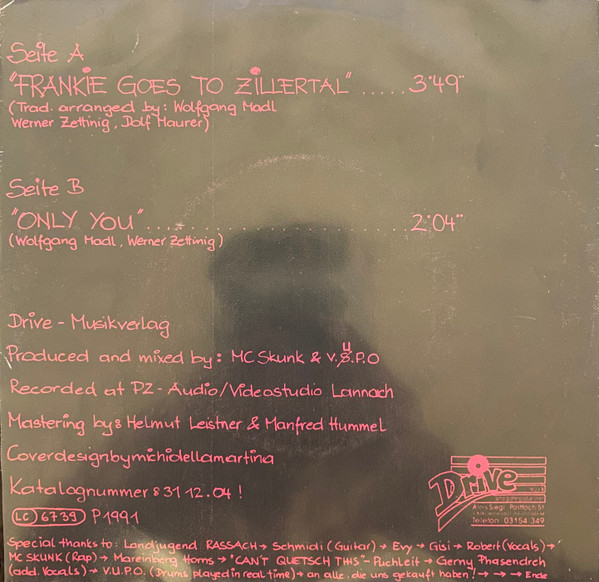 Seite A
"FRANKIE GOES TO ZILLERTAL".....3'49"
(Trad. arranged by: Wolfgang Madl
Werner Zettinig, Dolf Maurer)
Seite B
"ONLY YOU"........................2'04"
(Wolfgang Madl, Werner Zettinig)
Drive - Musikverlag
Produced and mixed by: MC Skunk & V.U.P.O
Recorded at PZ-Audio/Videostudio Lannach
Mastering by: Helmut Leistner & Manfred Hummel
Coverdesignbymichidellamartina
Katalognummer: 31 12.04!
LC 6739 P1991
Drive
Alois Siegl Postfach 51
Telefon 03154 349
Special thanks to: Landjugend RASSACH→ Schmidi (Guitar)→ Evy→ Gisi→ Robert (Vocals)→
MC SKUNK (Rap)→ Mareinberg Horns→ "CAN'T QUETSCH THIS"- Puchleit→ Gerny Phasendreh
(add. Vocals)→ V.U.P.O. (Drums played in real time)→ an alle, die uns gekauft haben!→ → → → Ende